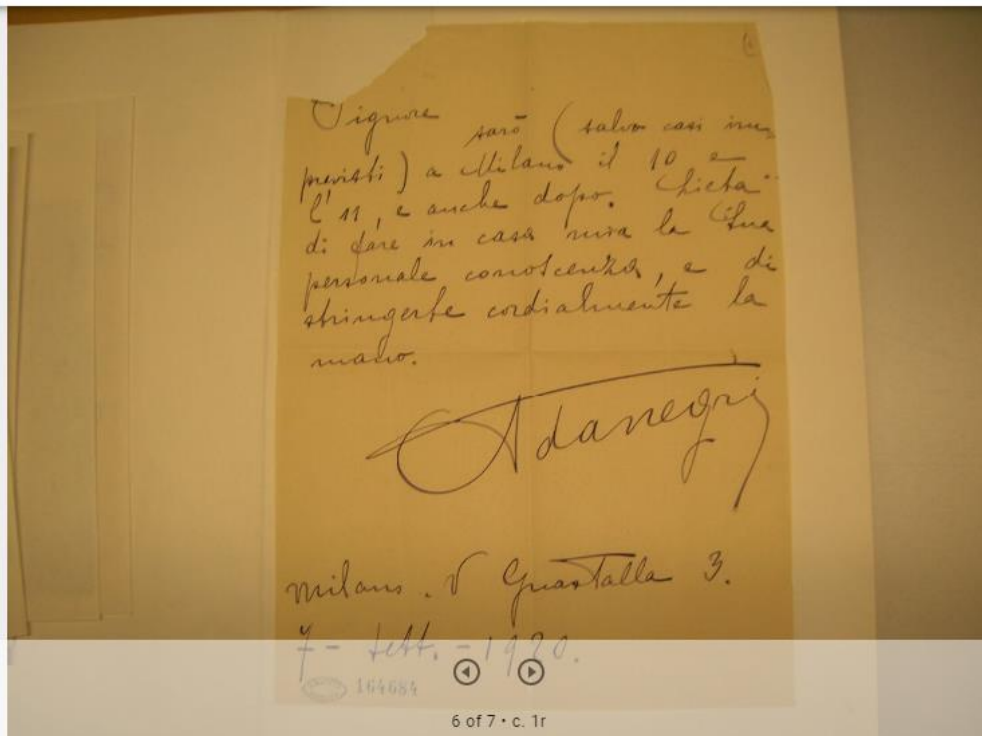 Signore
sarò (salvo casi im-
previsti) a Milano il 10 e
l'11, e anche dopo. Lieta
di fare in casa mia la Sua
personale conoscenza, e di
stringerle cordialmente la
mano.
Ada Negri
Milano. V Guastalla 3.
7 - sett. - 1920.
164684
6 of 7 • c. 1r